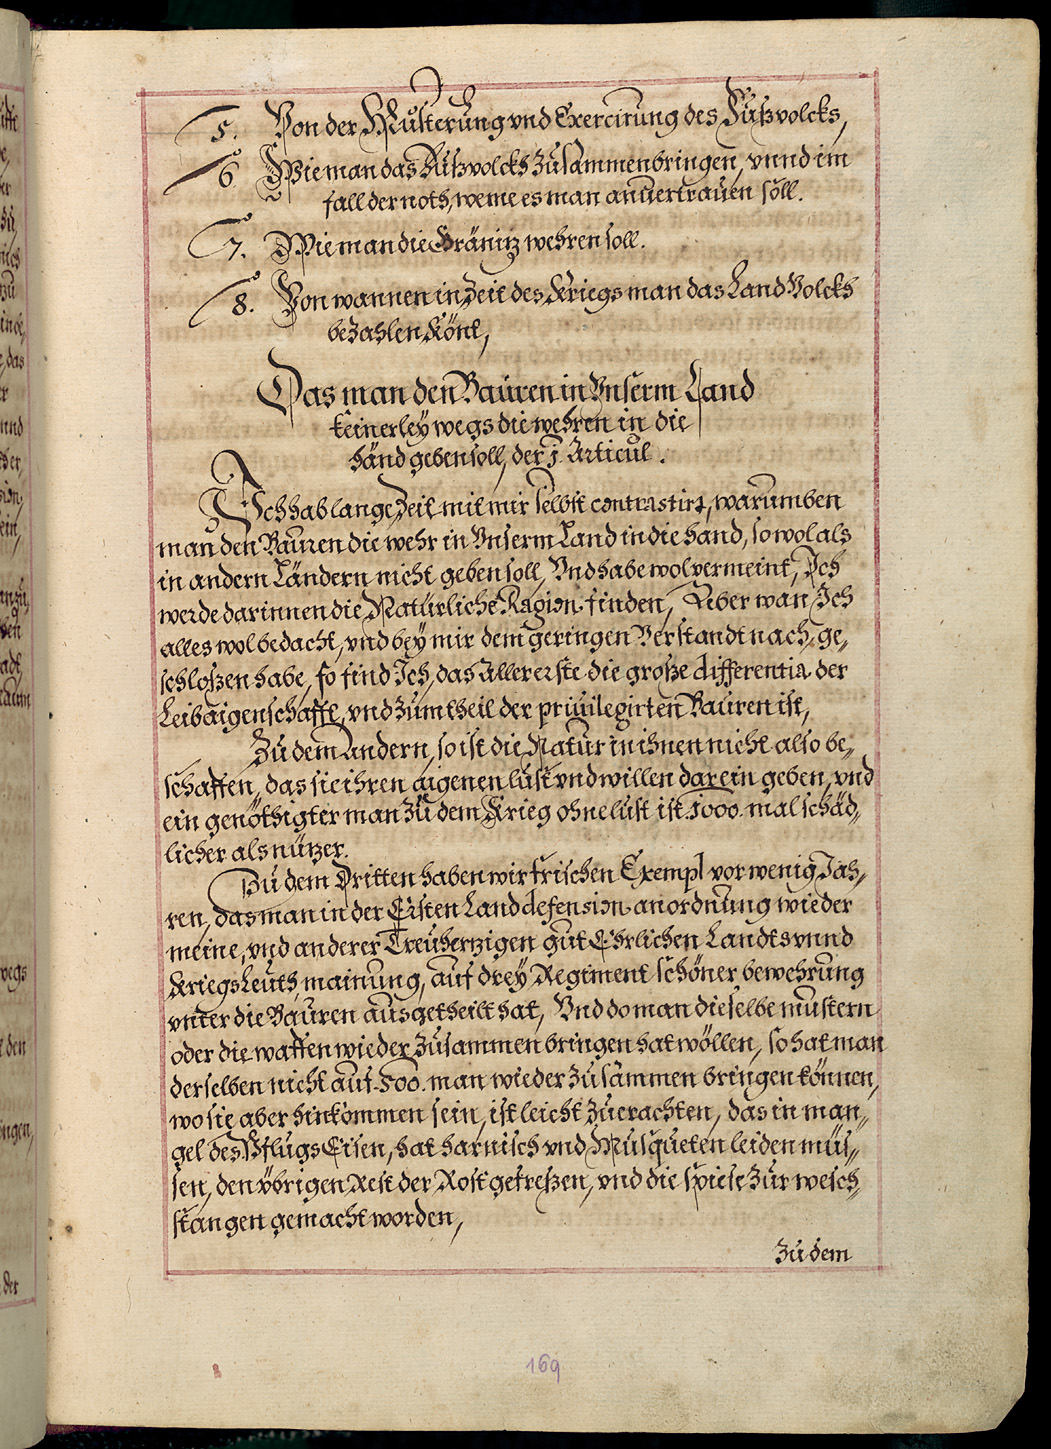 5. Von der Musterung vnd Exercirung des Fußvolcks,
6 Wie man das Fußvolcks zusammenbringen, vnnd im
fall der noth, weme es man anuertrauen soll.
7. Wie man die Gränitz wehren soll.
8. Von wannen in Zeit des Kriegs man das Land Volcks
bezahlen könt,
Das man den Bauren in Vnserm Land
keinerley wegs die wehren in die
händ geben soll, der j. Articul.
Ich hab lange Zeit mit mir selbst contrastirt, warumben
man den Bauren die wehr in Vnserm Land in die hand, so wol als
in andern Ländern nicht geben soll, Vnd habe wol vermeint, Ich
werde darinnen die Natürliche Ragion finden, Aber wan Ich
alles wol bedacht, vnd bey mir dem geringen Verstandt nach, ge,,
schloßen habe, so find Ich, das Allererste die große differentia der
Leibaigenschafft, vnd zum theil der priuilegirten Bauren ist,
Zu dem Andern, so ist die Natur in ihnen nicht also be,,
schaffen, das sie ihren aigenen lust vnd willen darein geben, vnd
ein genöthigter man zu dem Krieg ohne lust ist 1000. mal schäd,,
licher als nützer.
Zu dem Dritten haben wir frischen Exempl vor wenig Jah,,
ren, das man in der Ersten Land defension anordnung wieder
meine, vnd anderer Treuhertzigen gut Ehrlichen Landts vnnd
Kriegs Leuth mainung, auf drey Regiment schöner bewehrung
vnter die Bauren ausgetheilt hat, Vnd do man dieselbe mustern
oder die waffen wieder zusammen bringen hat wöllen, so hat man
derselben nicht auf 500. man wieder zusammen bringen können,
wo sie aber hinkommen sein, ist leicht zuerachten, das in man,,
gel des Pflugs Eisen, hat harnisch vnd Musqueten leiden müs,,
sen, den vbrigen Rest der Rost gefreßen, vnd die spiese zur wesch,,
stangen gemacht worden,
Zu dem
169